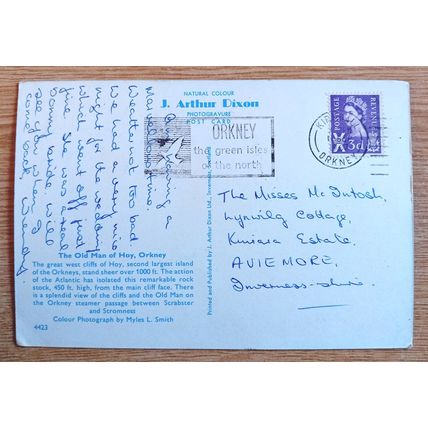 NATURAL COLOUR
J. Arthur Dixon
PHOTOGRAVURE
POST CARD
ORKNEY
the green isles
of the north
POSTAGE
REVENUE
3d
ORKNEY
having a
Marvellous time.
Weather not too bad
We had a very nice
night for the wedding
which went off just
fine. She was a real
bonny bride. Will
see you when I
come back. Wendy
The Misses McIntosh,
Lynwilg Cottage,
Kinrara Estate,
AVIEMORE,
Inverness-shire.
The Old Man of Hoy, Orkney
The great west cliffs of Hoy, second largest island
of the Orkneys, stand sheer over 1000 ft. The action
of the Atlantic has isolated this remarkable rock
stock, 450 ft. high, from the main cliff face. There
is a splendid view of the cliffs and the Old Man on
the Orkney steamer passage between Scrabster
and Stromness
Colour Photograph by Myles L. Smith
4423
Printed and Published by J. Arthur Dixon Ltd., Inverness, Scotland